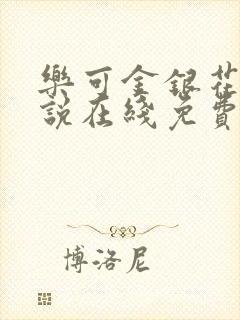 樂可金銀花
說在綫免費
博洛尼